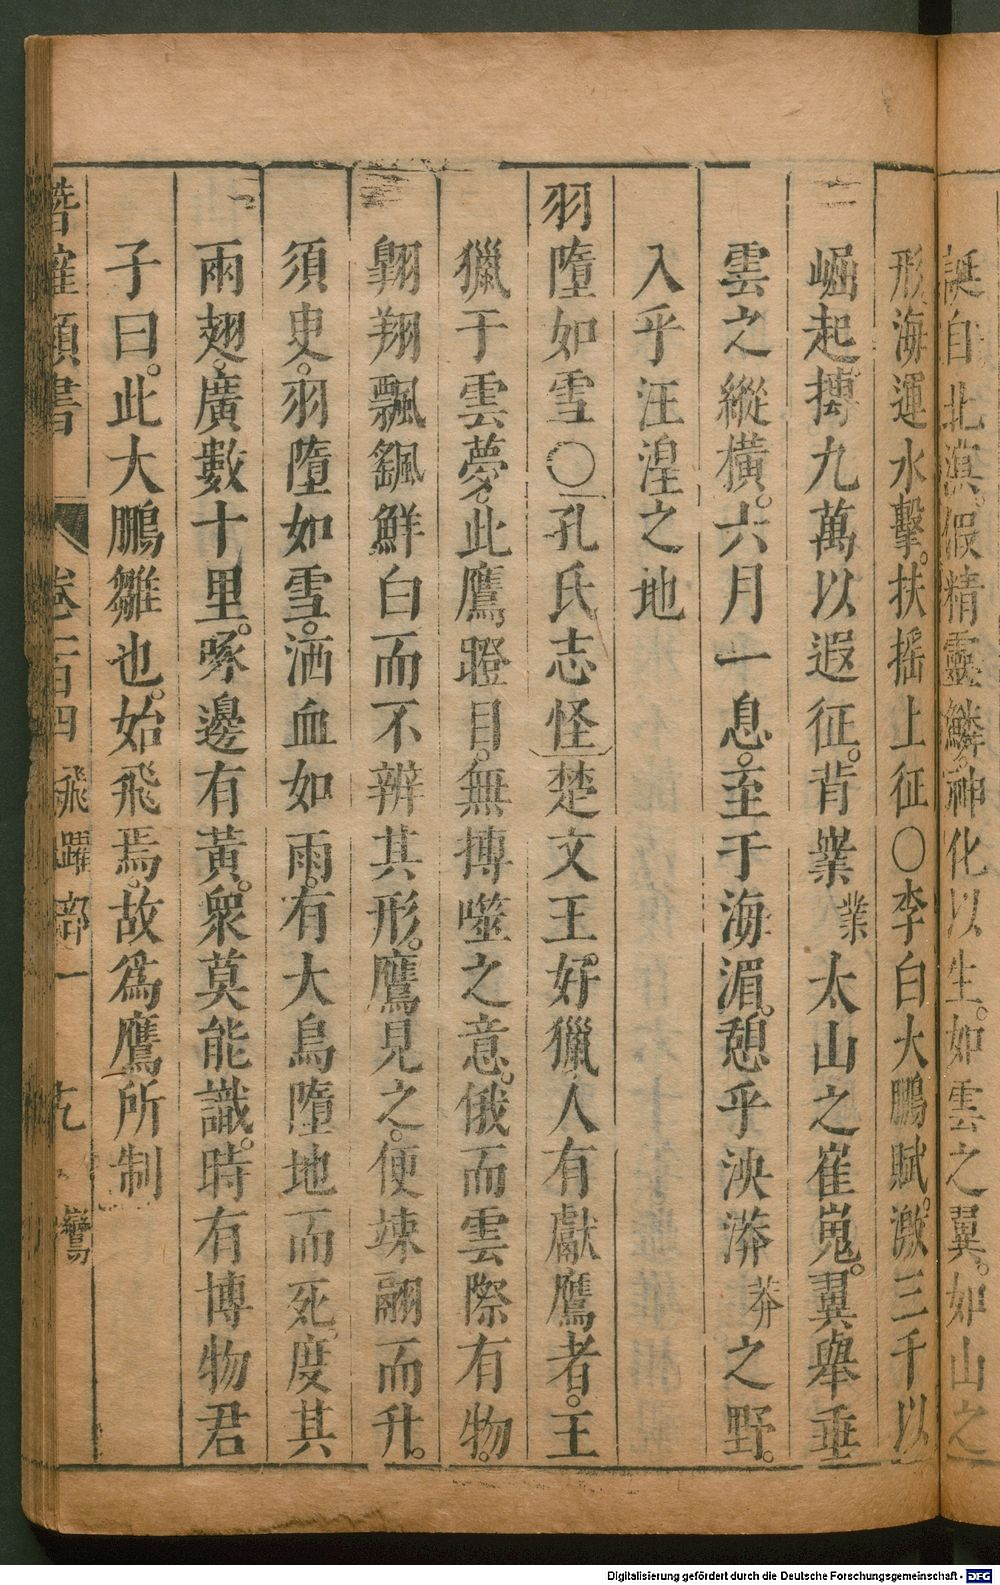 誕自北溟。假精靈鱗。神化以生。如雲之翼。如山之
形。海運水擊。扶搖上征〇李白大鵬賦。激三千以
崛起。摶九萬以遐征。背嶪業太山之崔嵬。翼舉垂
雲之縱橫。六月一息。至于海湄。憩乎泱漭莽之野。
入乎汪湟之地
羽墮如雪〇孔氏志怪楚文王。好獵人有獻鷹者。王
獵于雲夢。此鷹蹬目。無摶噬之意。俄而雲際有物。
翺翔飄颻鮮白而不辨其形。鷹見之。便竦翮而升。
須臾。羽墮如雪。洒血如雨。有大鳥墮地而死。度其
兩翅。廣數十里。啄邊有黃。衆莫能識。時有博物君
子曰。此大鵬雛也。始飛焉。故爲鷹所制
潛確類書 卷一百四 飛躍部一
Digitalisierung gefördert durch die Deutsche Forschungsgemeinschaft - DFG